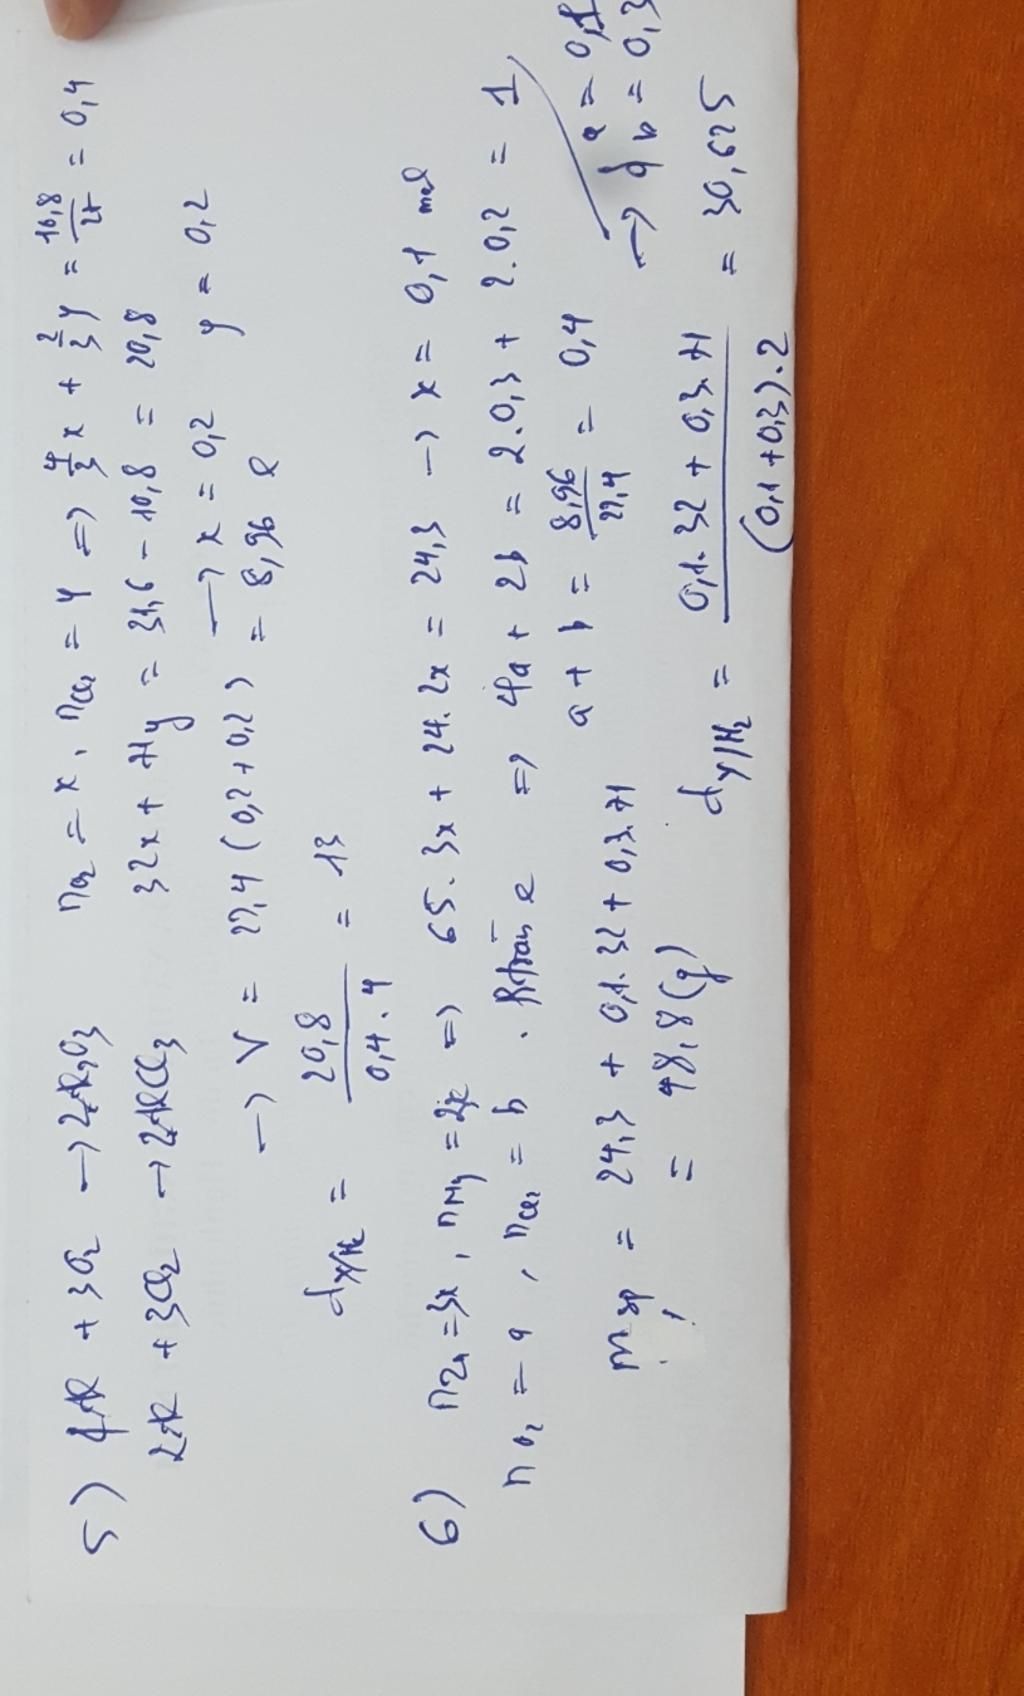 5) 4Al + 3O₂ → 2Al₂O₃ nO₂ = x, nCl₂ = y => 4/3 x + 2/3 y = 10,8/27 = 0,4
2Al + 3Cl₂ → 2AlCl₃ 32x + 71y = 31,6 - 10,8 = 20,8
→ x = 0,2 y = 0,2
→ V = 22,4 (0,2 + 0,2) = 8,96 l
dX/He = 20,8/0,4.4 = 13
6) nZn = 3x, nMg = 2x => 65.3x + 24.2x = 24,3 → x = 0,1 mol
nO₂ = a, nCl₂ = b. Bt toàn e => 4a + 2b = 2.0,3 + 2.0,2 = 1
a + b = 8,96/22,4 = 0,4 → { a = 0,1
b = 0,3
m sp = 24,3 + 0,1.32 + 0,3.71
= 48,8 (g)
dY/H₂ = 0,1.32 + 0,3.71/(0,1 + 0,3).2 = 30,625